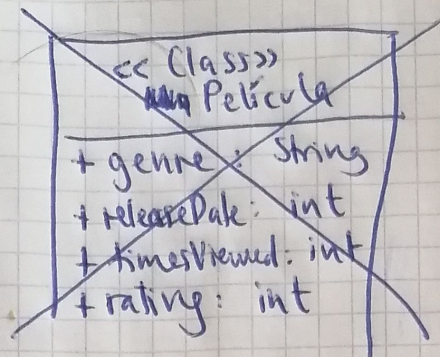 << Class>>
Película
+ genre : String
+ releaseDate: int
+ timesViewed: int
+ rating: int